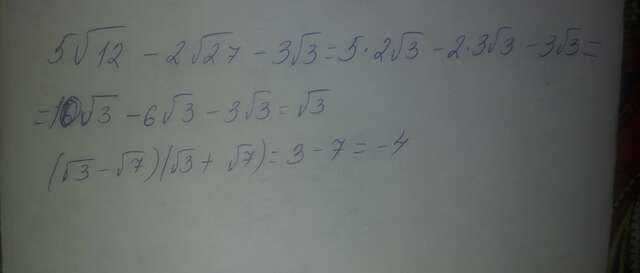 5√12 - 2√27 - 3√3 = 5·2√3 - 2·3√3 - 3√3 =
= 10√3 - 6√3 - 3√3 = √3
(√3 - √7)(√3 + √7) = 3 - 7 = -4